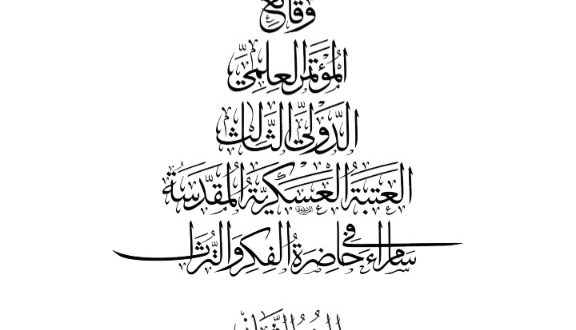 وقائع
المؤتمر العلمي
الدولي الثالث
العتبة العسكرية المقدسة
سامراء في حاضرة الفكر والتراث